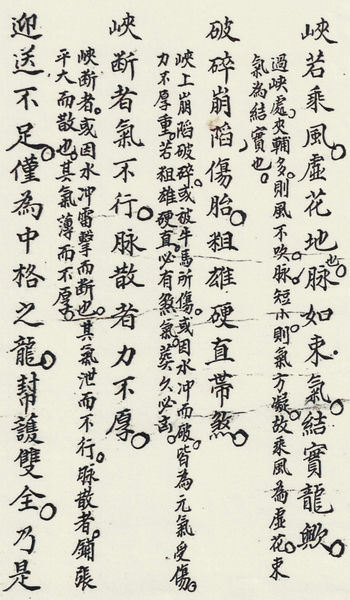 峽若乘風虛花地也脉如束氣結實龍歟
過峽處夾輔多則風不吹脉短小則氣方凝故乘風為虛花束
氣為結實也
破碎崩陷傷胎粗雄硬直帶煞
峽上崩陷破碎或被牛馬所傷或因水冲而破皆為元氣受傷
力不厚重若粗雄硬直必有煞氣葬久必凶
峽断者氣不行脉散者力不厚
峽断者或因水冲雷擊而断也其氣泄而不行脉散者鋪張
平大而散也其氣薄而不厚
迎送不足僅為中格之龍幇護雙全乃是